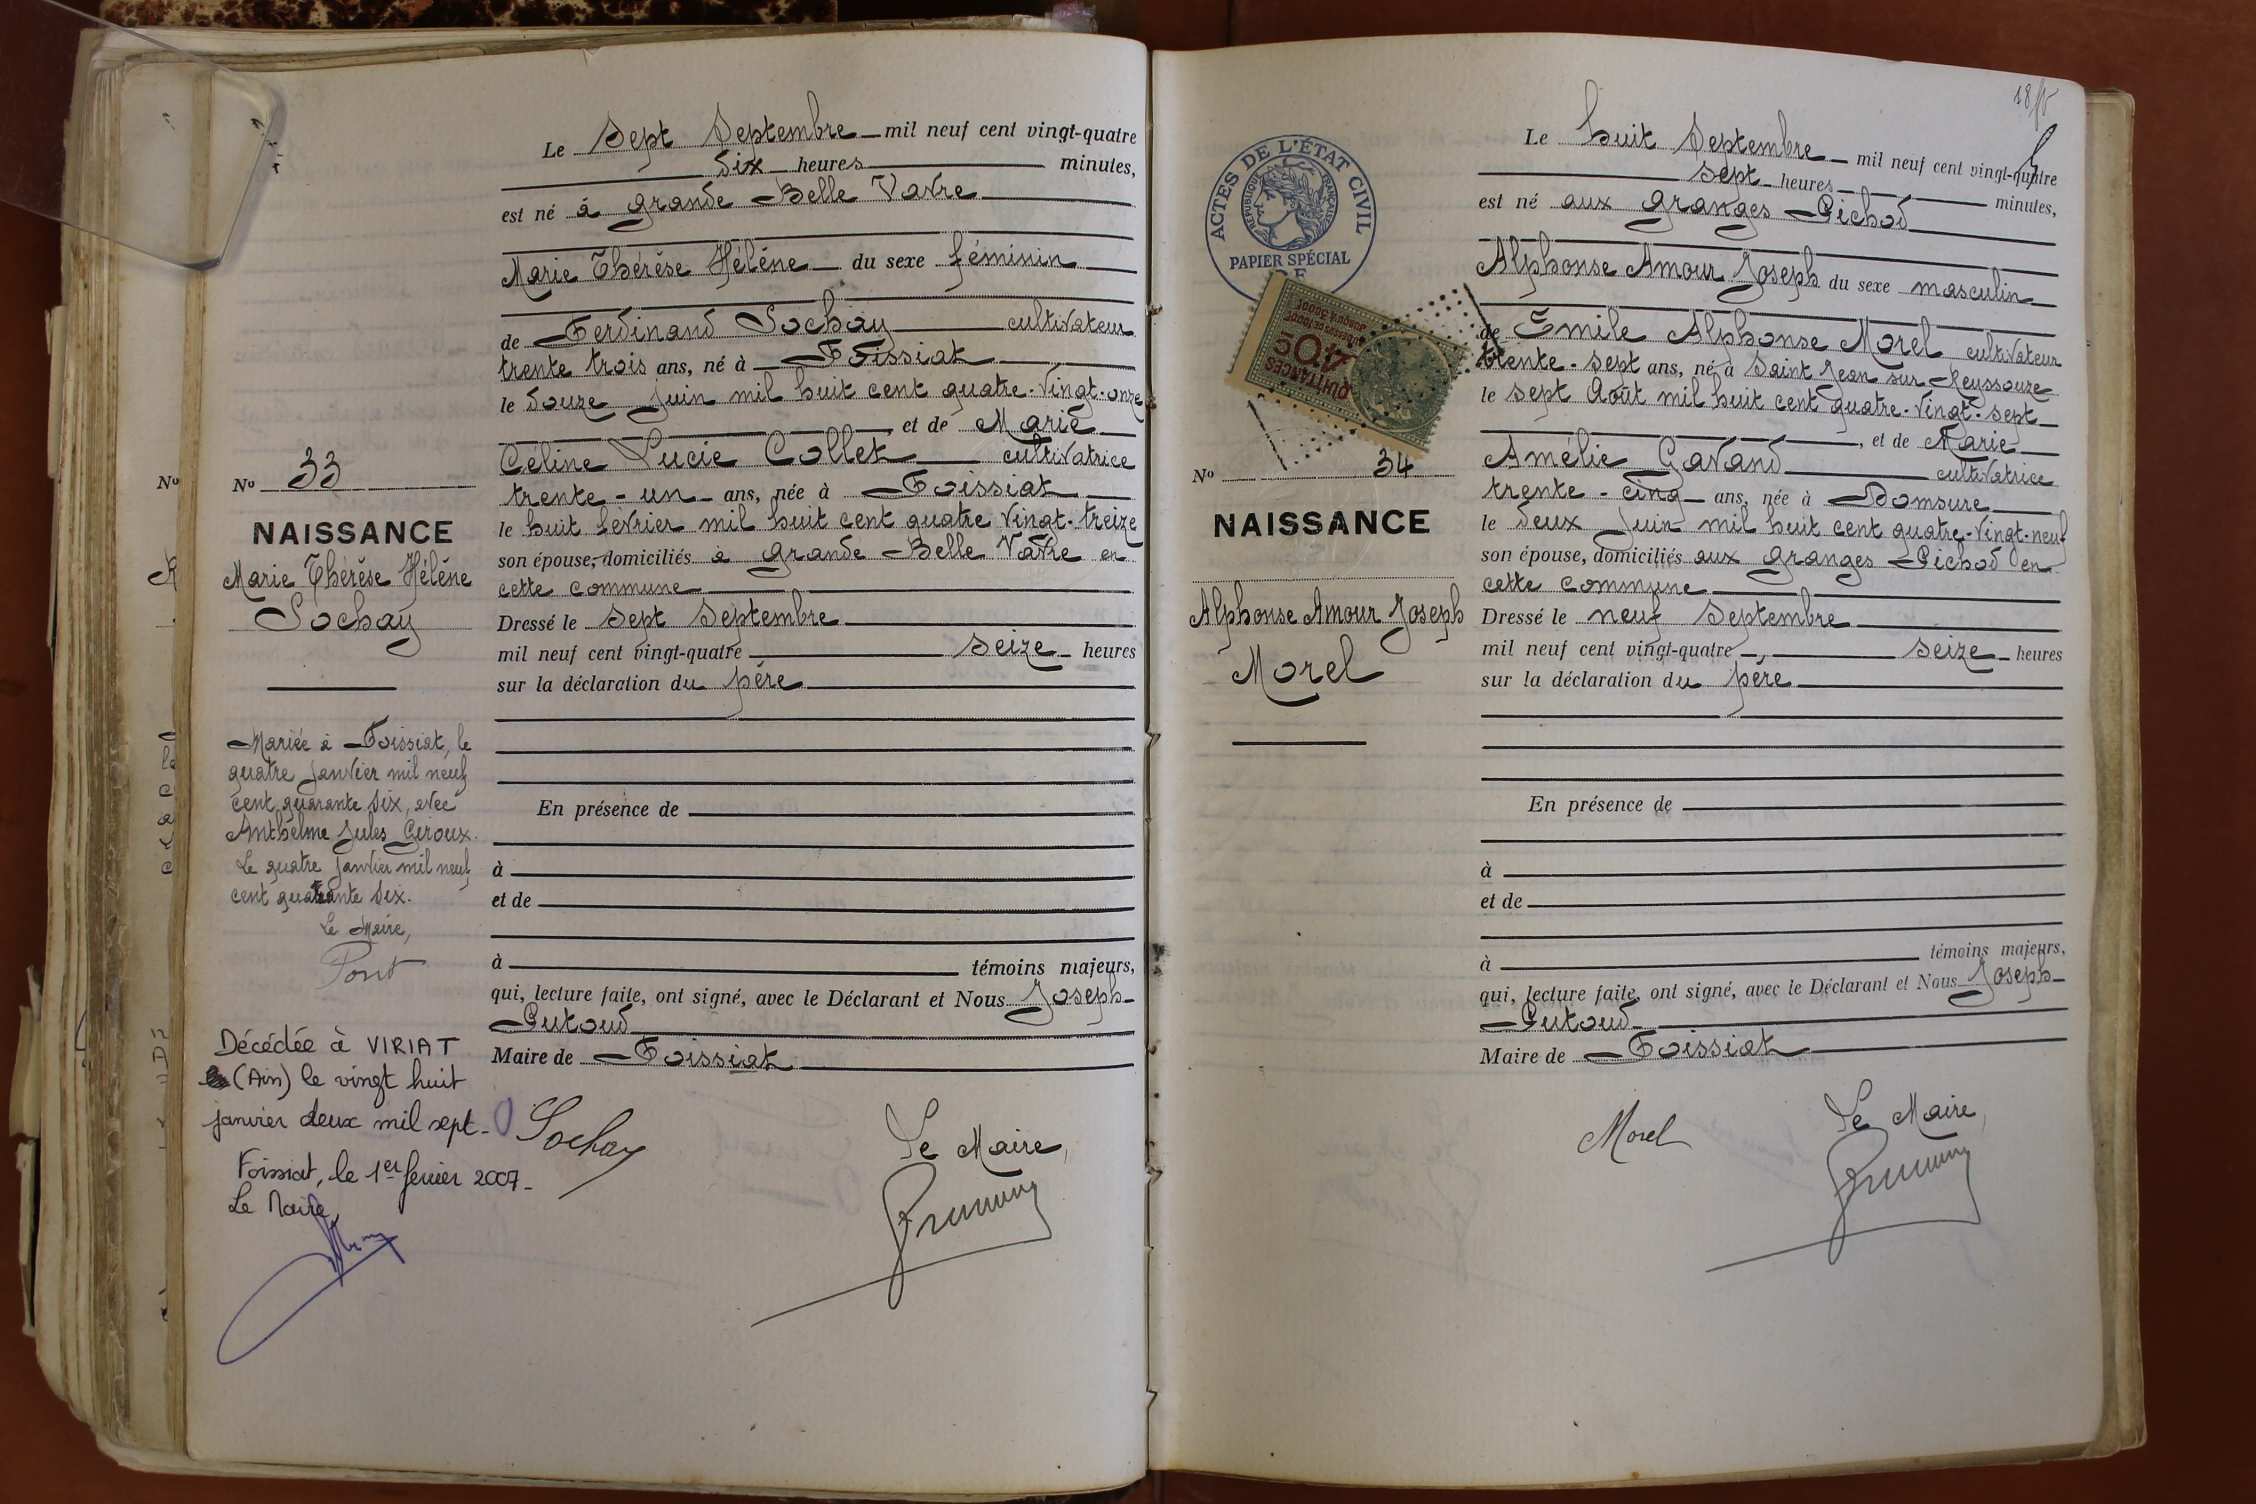 Le sept Septembre mil neuf cent vingt-quatre
six heures minutes,
est né à grande Belle Vavre
Marie Thérèse Hélène du sexe féminin
de Ferdinand Sochay cultivateur
trente trois ans, né à Foissiat
le douze juin mil huit cent quatre-vingt-onze
, et de Marie
Céline Lucie Collet cultivatrice
trente-un ans, née à Foissiat
le huit février mil huit cent quatre vingt-treize
son épouse, domiciliés à grande Belle Vavre en
cette commune
Dressé le sept Septembre
mil neuf cent vingt-quatre seize heures
sur la déclaration du père
En présence de
à
et de
à témoins majeurs,
qui, lecture faite, ont signé, avec le Déclarant et Nous Joseph
Putoud
Maire de Foissiat
Sochay
Le Maire,
No
No 33
NAISSANCE
Marie Thérèse Hélène
Sochay
Mariée à Foissiat, le
quatre janvier mil neuf
cent quarante six, avec
Anthelme Jules Giroux.
Le quatre janvier mil neuf
cent quarante six.
Le Maire,
Pont
Décédée à VIRIAT
(Ain) le vingt huit
janvier deux mil sept-
Foissiat, le 1er février 2007-
Le Maire,
18/5
ACTES DE L'ÉTAT CIVIL
RÉPUBLIQUE FRANÇAISE
PAPIER SPÉCIAL
QUITTANCES
40c
Le huit Septembre mil neuf cent vingt-quatre
sept heures minutes,
est né aux granges Pichod
Alphonse Amour Joseph du sexe masculin
de Emile Alphonse Morel cultivateur
trente-sept ans, né à Saint Jean sur Reyssouze
le sept Août mil huit cent quatre-vingt-sept
, et de Marie
Amélie Gavand cultivatrice
trente-cinq ans, née à Domsure
le deux juin mil huit cent quatre-vingt-neuf
son épouse, domiciliés aux granges Pichod en
cette commune
Dressé le neuf Septembre
mil neuf cent vingt-quatre, seize heures
sur la déclaration du père
En présence de
à
et de
à témoins majeurs,
qui, lecture faite, ont signé, avec le Déclarant et Nous Joseph
Putoud
Maire de Foissiat
Morel
Le Maire,
No 34
NAISSANCE
Alphonse Amour Joseph
Morel